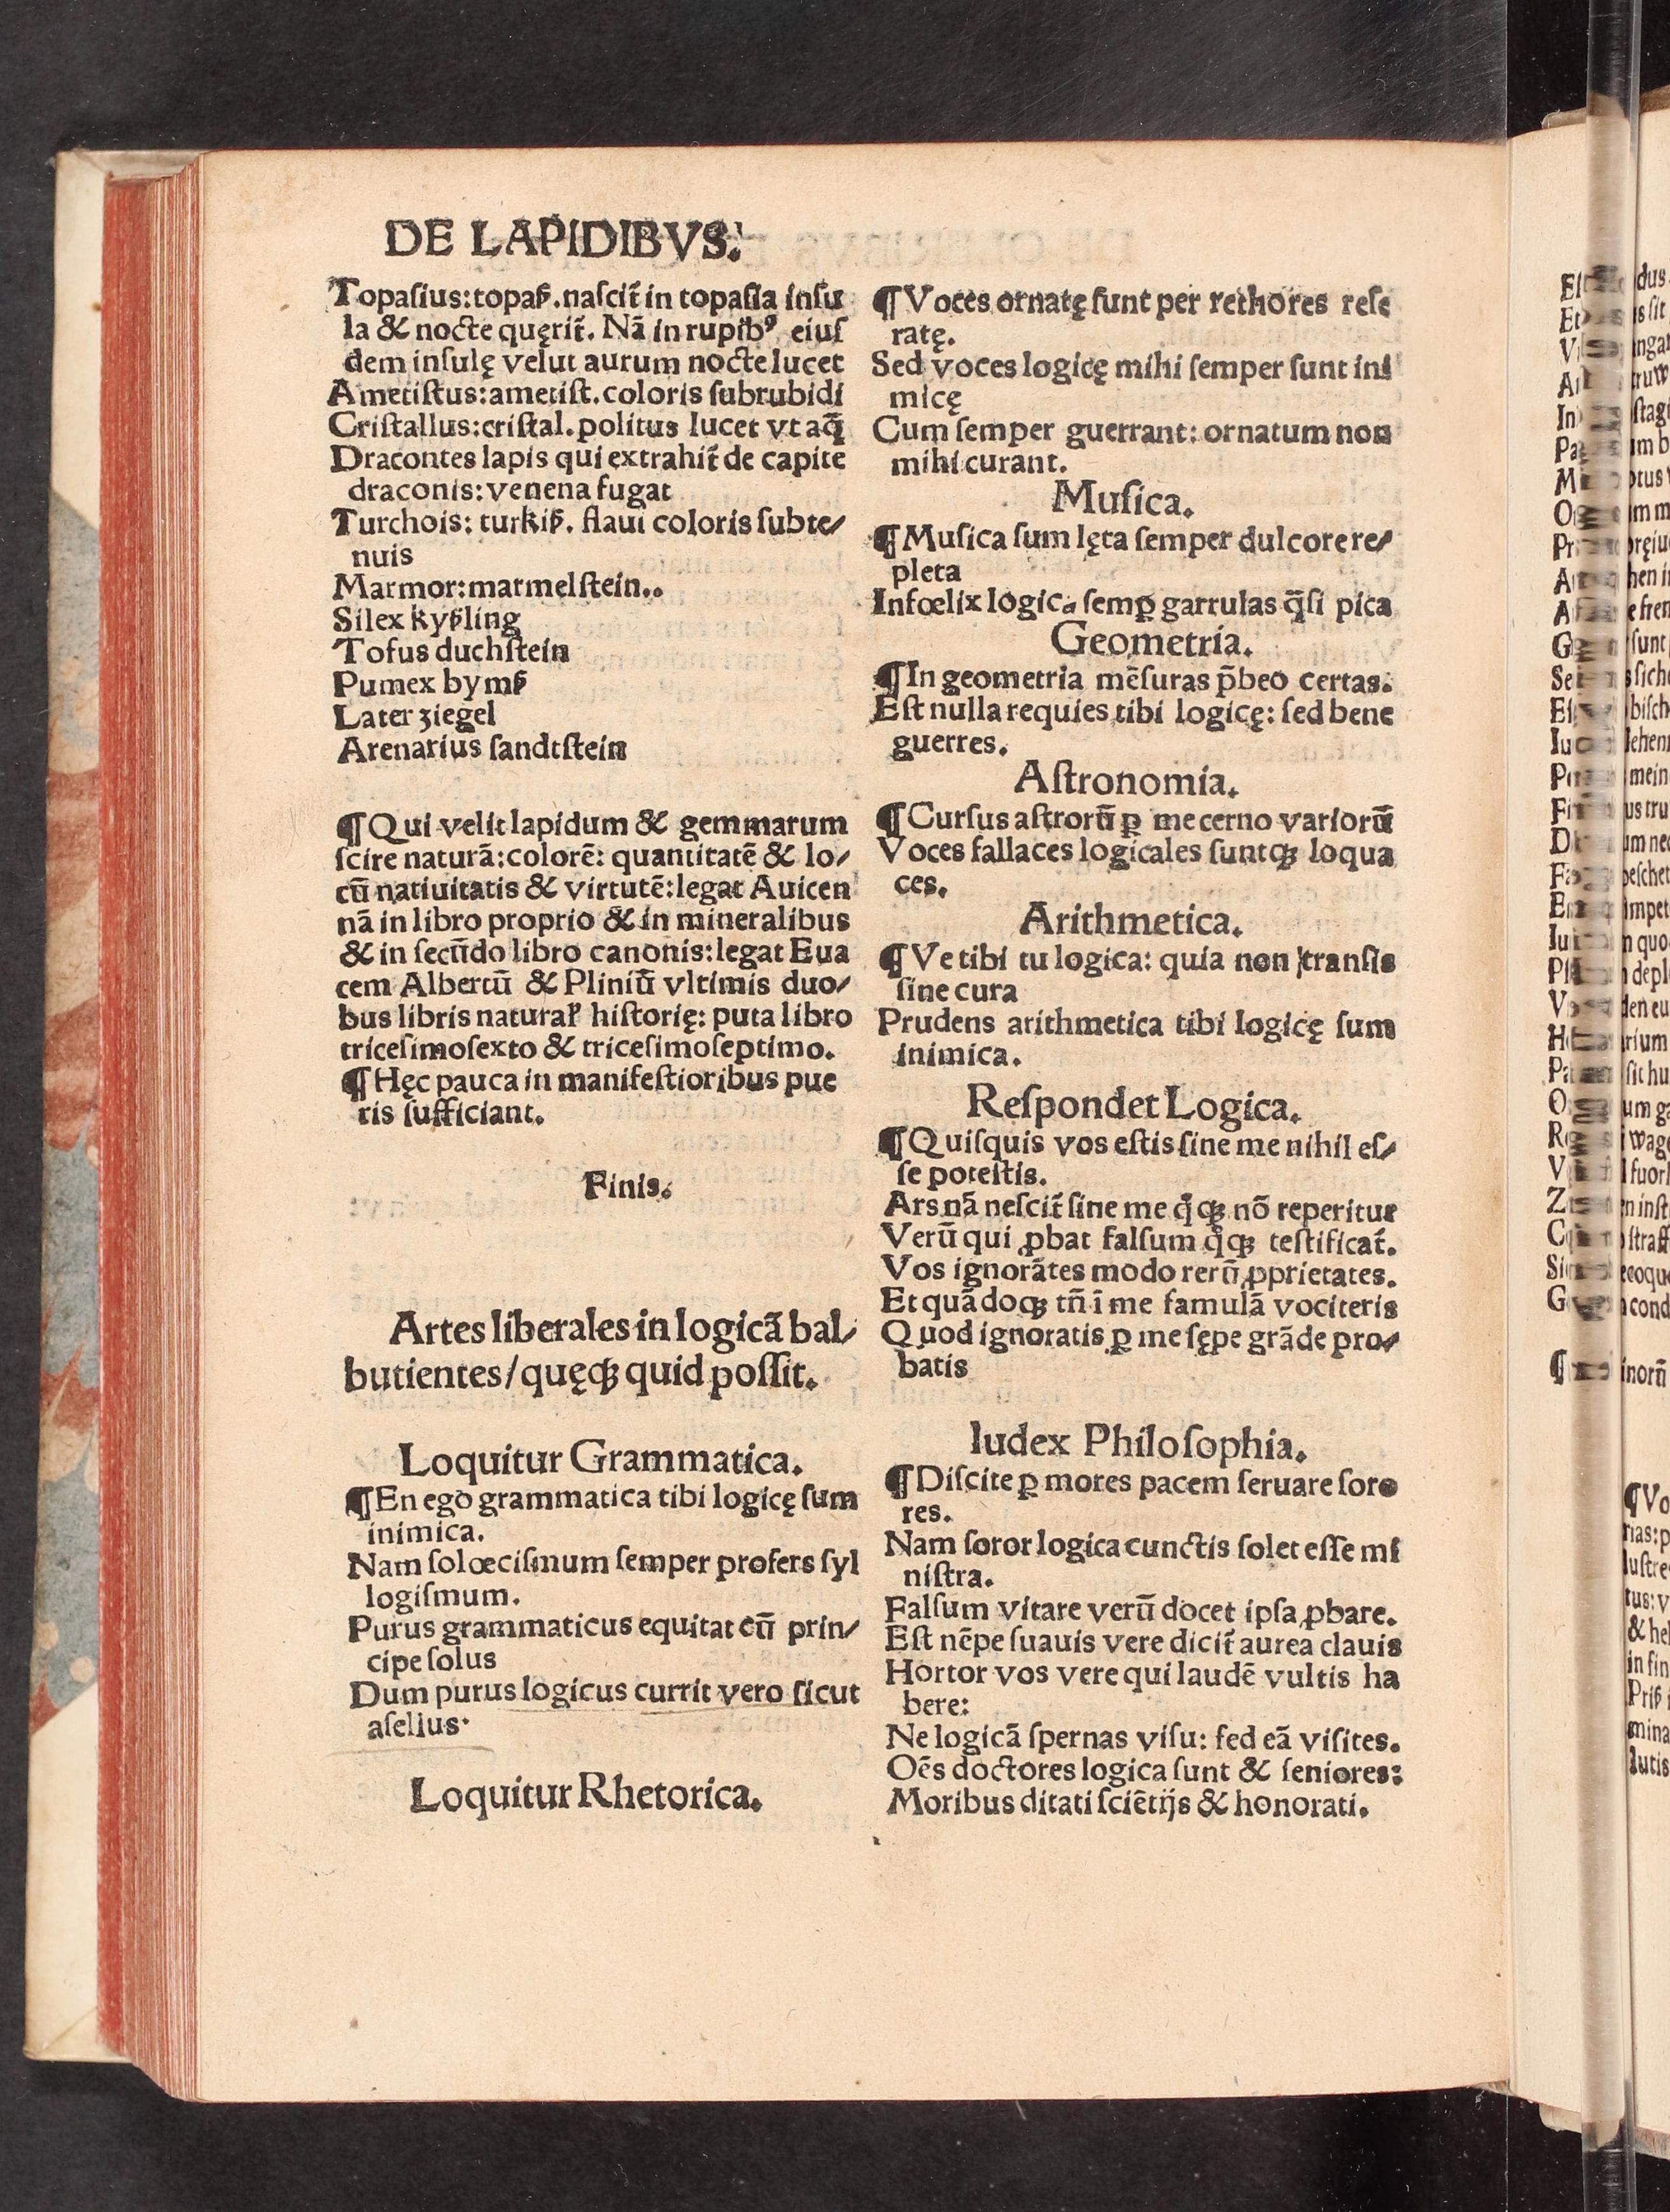 DE LAPIDIBVS.
Topaſius:topaß.naſcit᷑ in topaſia inſu
la & nocte quęrit᷑. Nā in rupibꝰ eiuſ
dem inſulę velut aurum nocte lucet
Ametiſtus:ametiſt.coloris ſubrubidi
Criſtallus:criſtal.politus lucet vt aq̄
Dracontes lapis qui extrahit᷑ de capite
draconis:venena fugat
Turchois: turkiß. flaui coloris ſubte/
nuis
Marmor:marmelſtein..
Silex kyßling
Tofus duchſtein
Pumex bymß
Later ziegel
Arenarius ſandtſtein
¶Qui velit lapidum & gemmarum
ſcire naturā:colorē: quantitatē & lo/
cū natiuitatis & virtutē:legat Auicen
nā in libro proprio & in mineralibus
& in ſecūdo libro canonis:legat Eua
cem Albertū & Pliniū vltimis duo/
bus libris naturaľ hiſtorię: puta libro
triceſimoſexto & triceſimoſeptimo.
¶Hęc pauca in manifeſtioribus pue
ris ſufficiant.
Finis.
Artes liberales in logicā bal/
butientes/quęqꝫ quid poſſit.
Loquitur Grammatica.
¶En ego grammatica tibi logicę ſum
inimica.
Nam ſolœciſmum ſemper profers ſyl
logiſmum.
Purus grammaticus equitat cū prin/
cipe ſolus
Dum purus logicus currit vero ſicut
aſellus.
Loquitur Rhetorica.
¶Voces ornatę ſunt per rethores reſe
ratę.
Sed voces logicę mihi ſemper ſunt ini
micę
Cum ſemper guerrant: ornatum non
mihi curant.
Muſica.
¶Muſica ſum lęta ſemper dulcore re/
pleta
Infœlix logica ſemꝑ garrulas q̄ſi pica
Geometria.
¶In geometria mēſuras p̄beo certas.
Eſt nulla requies tibi logicę: ſed bene
guerres.
Aſtronomia.
¶Curſus aſtrorū ꝑ me cerno variorū
Voces fallaces logicales ſuntqꝫ loqua
ces.
Arithmetica.
¶Ve tibi tu logica: quia non tranſis
ſine cura
Prudens arithmetica tibi logicę ſum
inimica.
Reſpondet Logica.
¶Quiſquis vos eſtis ſine me nihil eſ/
ſe poteſtis.
Ars nā neſcit᷑ ſine me q̊qꝫ nō reperitur
Verū qui ꝓbat falſum q̊qꝫ teſtificat᷑.
Vos ignorātes modo rerū ꝓprietates.
Et quādoqꝫ tn̄ ī me famulā vociteris
Quod ignoratis ꝑ me ſępe grāde pro/
batis
Iudex Philoſophia.
¶Diſcite ꝑ mores pacem ſeruare ſoro
res.
Nam ſoror logica cunctis ſolet eſſe mi
niſtra.
Falſum vitare verū docet ipſa ꝓbare.
Eſt nēpe ſuauis vere dicit᷑ aurea clauis
Hortor vos vere qui laudē vultis ha
bere:
Ne logicā ſpernas viſu: ſed eā viſites.
Oēs doctores logica ſunt & ſeniores:
Moribus ditati ſciētijs & honorati.